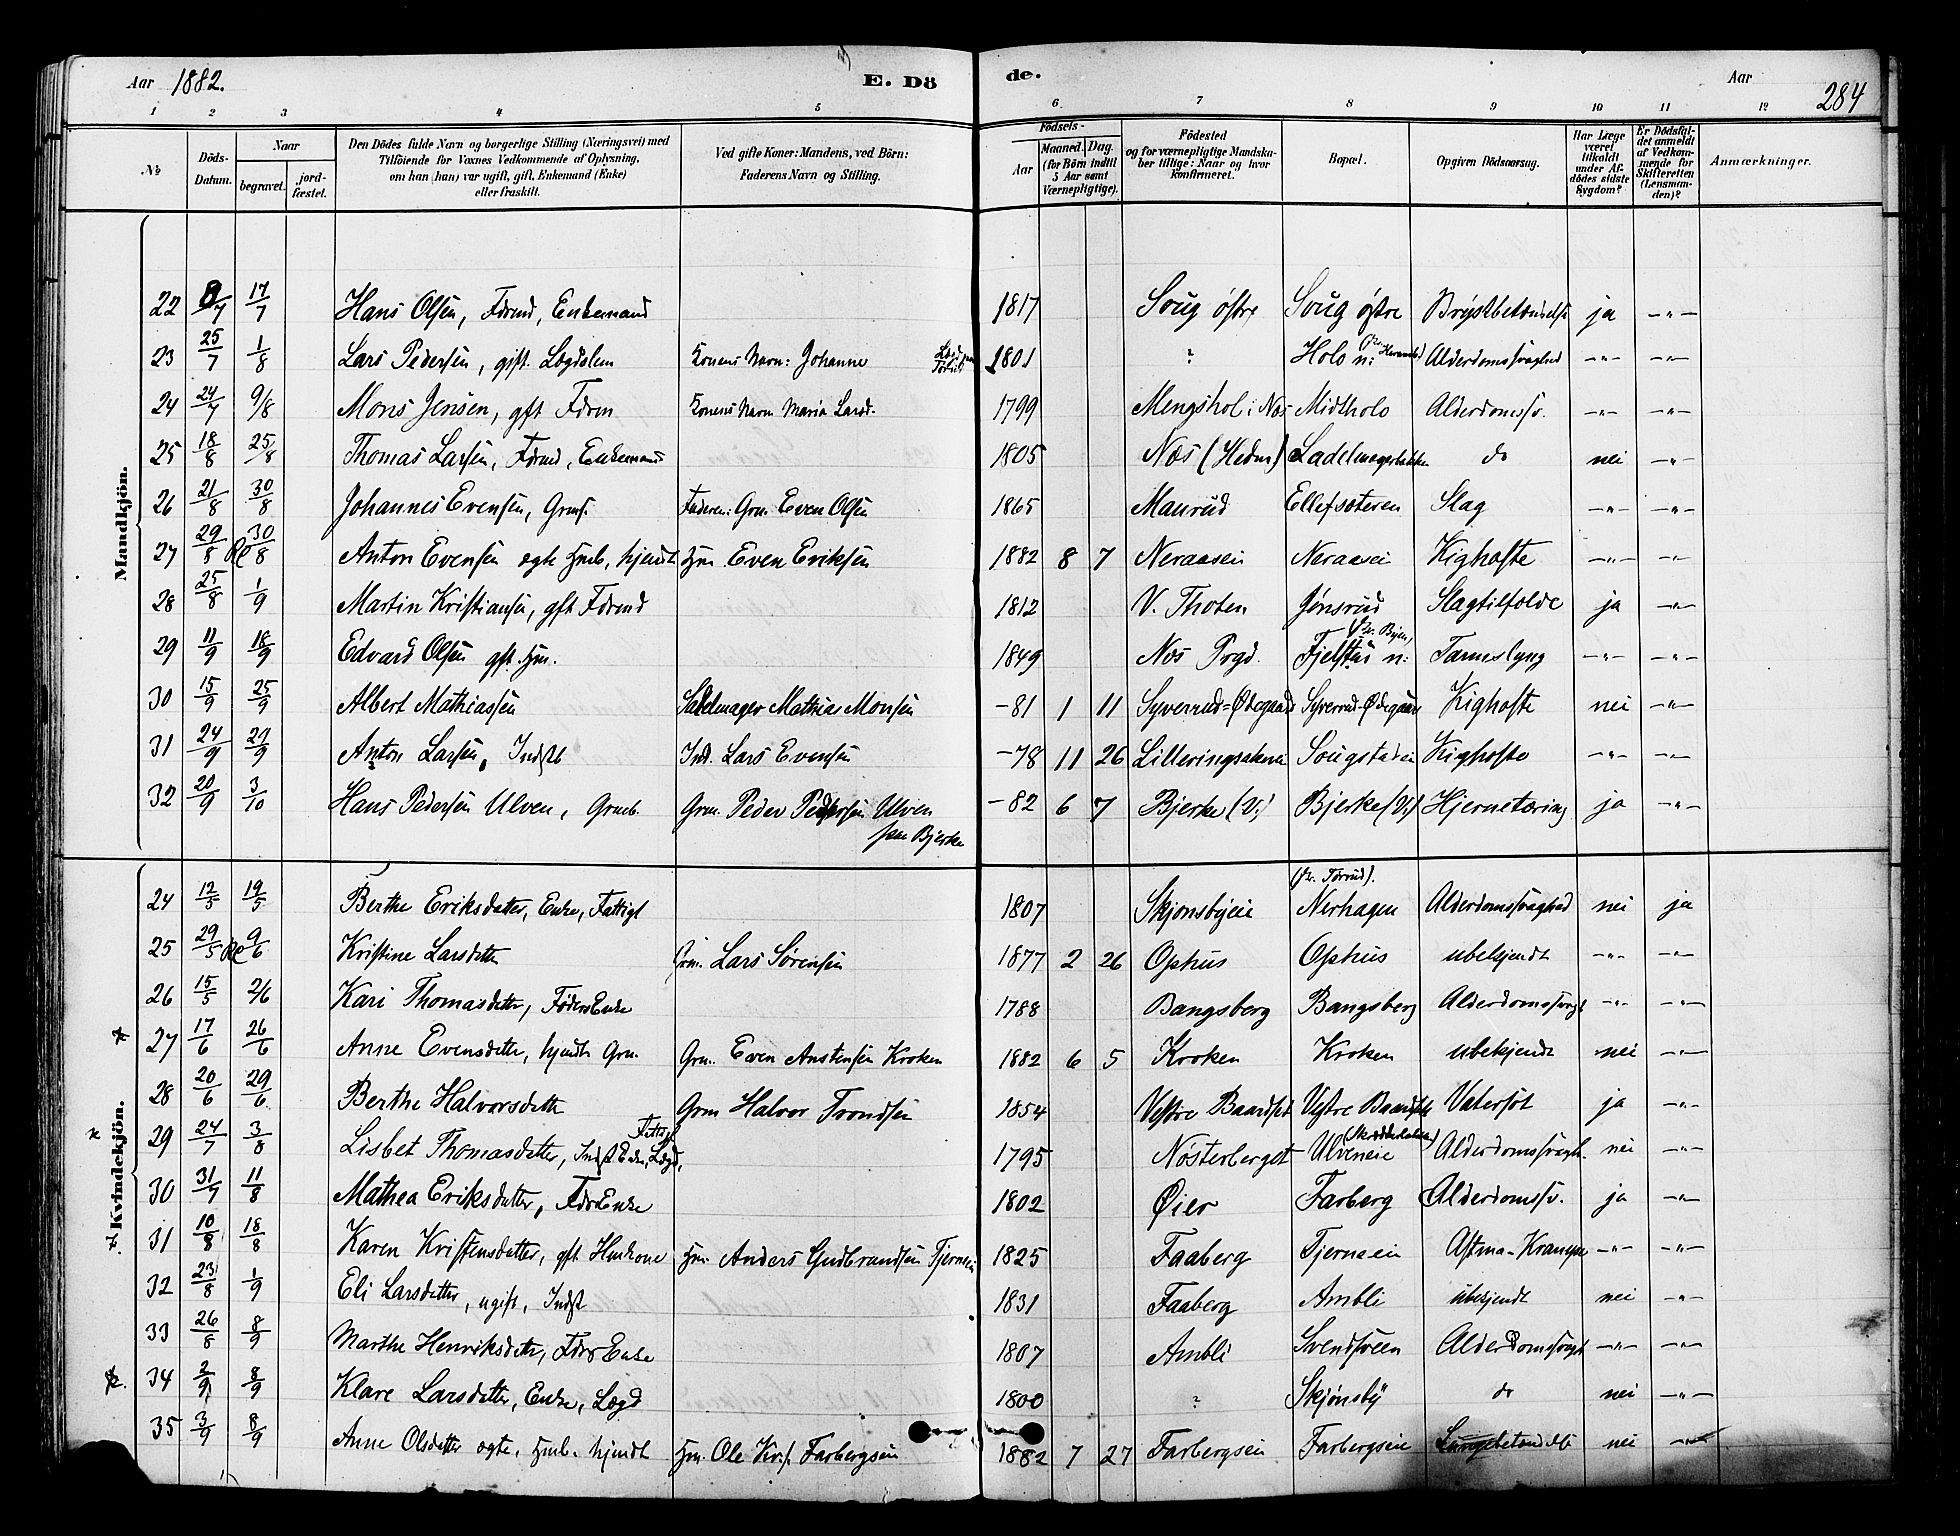 Aar 1882. E. Dö de. Aar 284
1 2 3 4 5 6 7 8 9 10 11 12
№ Döds-Datum. Naar begravet. jord-fæstet. Den Dödes fulde Navn og borgerlige Stilling (Næringsvei) med Tilföiende for Voxnes Vedkommende af Oplysning, om han (hun) var ugift, gift, Enkemand (Enke) eller fraskilt. Ved gifte Koner: Mandens, ved Börn: Faderens Navn og Stilling. Födsels- Aar Maaned. Dag. (for Börn indtil 5 Aar samt Værnepligtige). Födested og for værnepligtige Mandska-ber tillige: Naar og hvor konfirmeret. Bopæl. Opgiven Dödsaarsag. Har Læge været tilkaldt under Af-dödes sidste Sygdom? Er Dödsfal-det anmeldt af Vedkom-mende for Skifteretten (Lensman-den)? Anmærkninger.
Mandkjön.
22 8/7 17/7 Hans Olsen, Fdrmd, Enkemand 1817 Soug östre Soug östre Brystbetændelse ja -"-
23 25/7 1/8 Lars Pedersen, gift. Lægdslem Konens Navn: Johanne 1801 ? Holo n: Alderdomssvaghed -"- -"-
24 24/7 9/8 Mons Jensen, gft Fdrm Konens Navn Maria Larsd. 1799 Mengshol i Næs Midtholo Alderdomssv. -"- -"-
25 18/8 25/8 Thomas Larsen, Fdrmd, Enkemand 1805 Næs (Hedm) Ladelmagerbakken do nei -"-
26 21/8 30/8 Johannes Evensen, Grms. Faderen: Grm. Even Olsen 1865 Maurud Ellefsæteren Slag -"- -"-
27 29/8 30/8 Anton Evensen ægte Hmb, hjemdt Hm Even Eriksen 1882 8 7 Neraaseie Neraaseie Kighoste -"- -"-
28 25/8 1/9 Martin Kristiansen, gft Fdrmd 1812 V. Thoten Jönsrud Slagtilfælde ja -"-
29 11/9 18/9 Edvard Olsen gft. Hm. 1849 Næs Prgd. Fjelstad n: Tarmeslyng -"- -"-
30 15/9 25/9 Albert Mathiassen Sadelmager Mathias Monsen -81 1 11 Syverrud-Ödegaard Syverrud-Ödegaard Kighoste nei -"-
31 24/9 27/9 Anton Larsen, Indstb Ind. Lars Evensen -78 11 26 Lilleringsakeren Sougstadeie Kighoste -"- -"-
32 20/9 3/10 Hans Pedersen Ulven, Grmb. Grm. Peder Pedersen Ulven -82 6 7 Bjerke (V.) Bjerke (V.) Hjernetæring ja -"-
paa Bjerke
Kvindekjön.
(fr. Torrud).
24 12/5 19/5 Berthe Eriksdatter, Enke, Fattigl 1807 Skjonsbyeie Nerhagen Alderdomssvaghed nei ja
25 29/5 9/6 Kristine Larsdatter Grm. Lars Sörensen 1877 2 26 Ophus Ophus ubekjendt -"- -"-
26 15/5 2/6 Kari Thomasdatter, FöderEnke 1788 Bangsberg Bangsberg Alderdomssvagh -"- -"-
27 17/6 26/6 Anne Evensdatter, hjemdt Grm Grm. Even Austensen Kroken 1882 6 5 Kroken Kroken ubekjendt nei -"-
28 20/6 29/6 Berthe Halvorsdatter Grm Halvor Trondsen 1854 Vestre Baardset Vestre Baardset Vatersot ja -"-
29 24/7 3/8 Lisbet Thomasdatter, Indst Enke, Lægd, Fattigl 1795 Nösterberget Ulveneie Alderdomssvagh. nei -"-
30 31/7 11/8 Mathea Eriksdatter, FdrEnke 1802 Öier Farberg Alderdomssv. ja -"-
31 10/8 18/8 Karen Kristensdatter, gft Huskone Hm. Anders Gudbrandsen Tjerneie 1825 Faaberg Tjerneeie Astma-Krampe -"- -"-
32 23/8 1/9 Eli Larsdatter, ugift, Indst 1831 Faaberg Ambli ubekjendt nei -"-
33 26/8 8/9 Marthe Henriksdatter, FdrsEnke 1807 Ambli Svendsveen Alderdomssvagh -"- -"-
34 2/9 8/9 Klare Larsdatter, Enke, Lægd 1800 ? Skjönsby do nei -"-
35 3/9 8/9 Anne Olsdatter ægte, Hmb. hjemdt Hm. Ole Krs. Farbergseie 1882 7 27 Farbergseie Farbergseie Lungebetændelse nei -"-